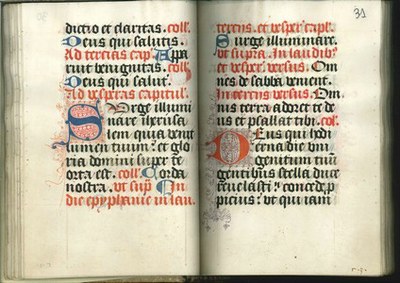 dictio et claritas. coll.
Deus qui salutis.
Ad tercias cap. Appa
ruit benignitas. coll.
Deus qui salut.
Ad vesperas capitul.
Surge illumi
nare iherusa
lem quia venit
lumen tuum: et glo
ria domini super te
orta est. coll. Corda
nostra. vt sup. In
die epyphanie in lau.
31
tercijs. et vesper. capl.
Surge illuminare.
vt supra. In laudibus
et vesper. versus. Om
nes de sabba venient.
In tercijs versus. Om
nis terra adoret te de
us et psallat tibi. col.
Deus qui hodi
erna die vni
genitum tuum
gentibus stella duce
reuelasti: concede p
picius: vt qui iam